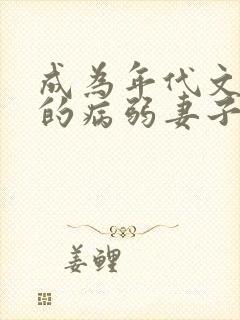 成為年代文
的病弱妻子
姜鲤